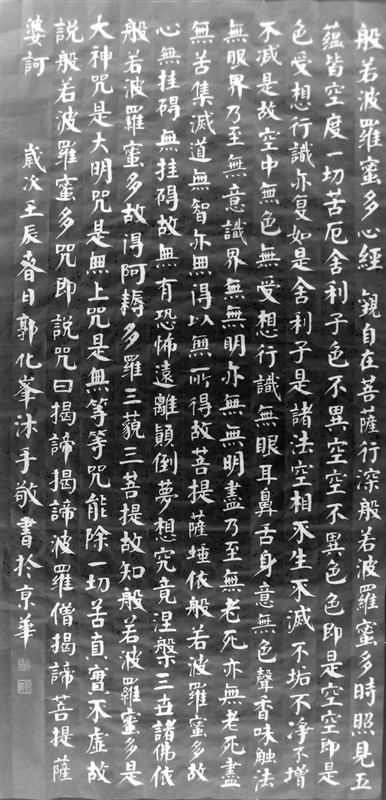 般若波羅蜜多心經 觀自在菩薩行深般若波羅蜜多時照見五
蘊皆空度一切苦厄舍利子色不異空空不異色色即是空空即是
色受想行識亦复如是舍利子是諸法空相不生不滅不垢不净不增
不減是故空中無色無受想行識無眼耳鼻舌身意無色聲香味触法
無眼界乃至無意識界無無明亦無無明盡乃至無老死亦無老死盡
無苦集滅道無智亦無得以無所得故菩提薩埵依般若波羅蜜多故
心無挂碍無挂碍故無有恐怖遠離顛倒夢想究竟涅槃三世諸佛依
般若波羅蜜多故得阿耨多羅三藐三菩提故知般若波羅蜜多是
大神咒是大明咒是無上咒是無等等咒能除一切苦真實不虚故
説般若波羅蜜多咒即説咒曰揭諦揭諦波羅僧揭諦菩提薩
婆訶
歲次壬辰春日郭化峯沐手敬書於京華